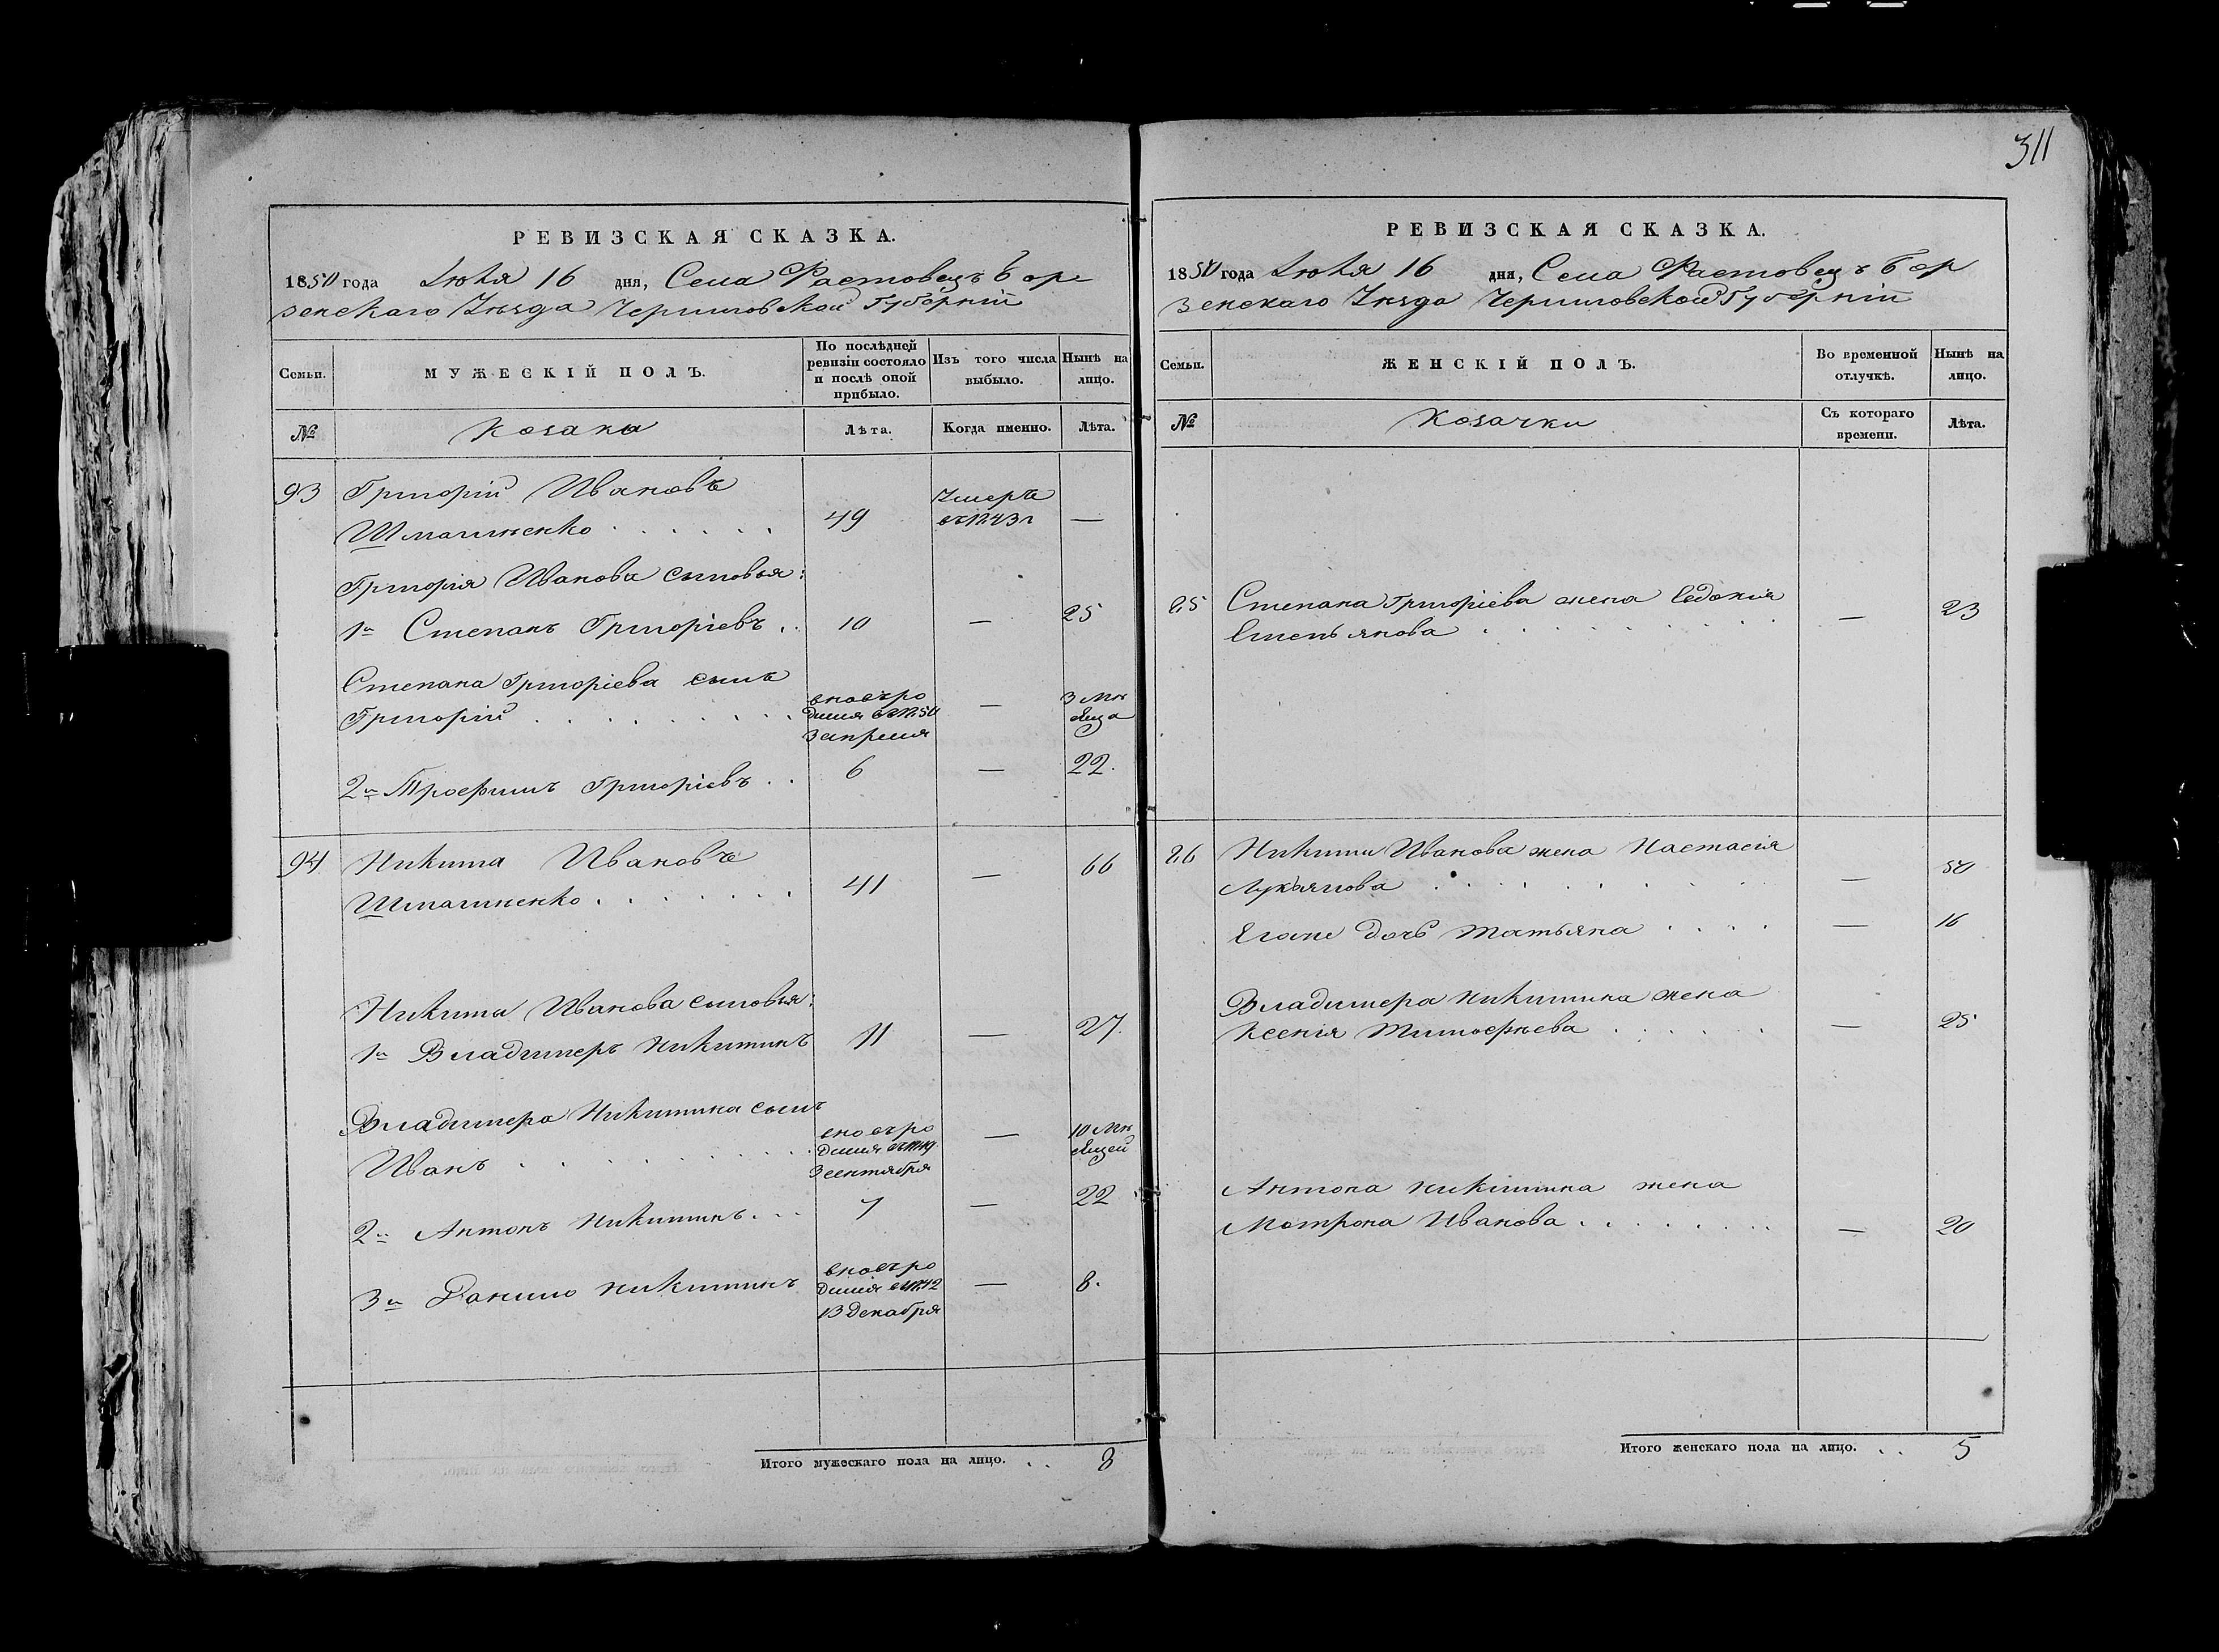 РЕВИЗСКАЯ СКАЗКА.
1850 года Іюля 16 дня, Села Фастовецъ Бор
зенскаго Уѣзда Черниговской Губерніи
Семьи.
МУЖЕСКІЙ ПОЛЪ.
По послѣдней ревизіи состояло и послѣ оной прибыло.
Изъ того числа выбыло.
Нынѣ на лицо.
№
Козаки
Лѣта.
Когда именно.
Лѣта.
93 Григорій Ивановъ
Шматченко . . . . . . 49 Умеръ въ 1843 г —
Григорія Иванова сыновья:
1й Степанъ Григоріевъ . . 10 — 25
Степана Григоріева сынъ
Григорій . . . . . . . . . вновь ро
дился въ 1850
3 апреля — 3 мѣ
сяца
2й Трофимъ Григоріевъ . . 6 — 22.
94 Никита Ивановъ
Шматченко . . . . . . . 41 — 66
Никиты Иванова сыновья:
1й Владимеръ Никитинъ 11 — 27.
Владимера Никитина сынъ
Иванъ . . . . . . . . . . вновь ро
дился въ 1849
3 сентября — 10 мѣ
сяцей
2й Антонъ Никитинъ . . . 7 — 22
3й Данило Никитинъ вновь ро
дился въ 1842
13 декабря — 8.
Итого мужескаго пола на лицо. . . 8
311
РЕВИЗСКАЯ СКАЗКА.
1850 года Іюля 16 дня, Села Фастовецъ Бор
зенскаго Уѣзда Черниговской Губерніи
Семьи.
ЖЕНСКІЙ ПОЛЪ.
Во временной отлучкѣ.
Нынѣ на лицо.
№
Козачки
Съ котораго времени.
Лѣта.
Степана Григоріева жена Евдокія
Емельянова . . . . . . . . . — 23
Никиты Иванова жена Настасія
Лукьянова . . . . . . . . . — 50
Егоже дочь Татьяна . . . . — 16
Владимера Никитина жена
Ксенія Тимофѣева . . . . . . — 25
Антона Никитина жена
Мотрона Иванова . . . . . . . — 20
Итого женскаго пола на лицо. . . 5